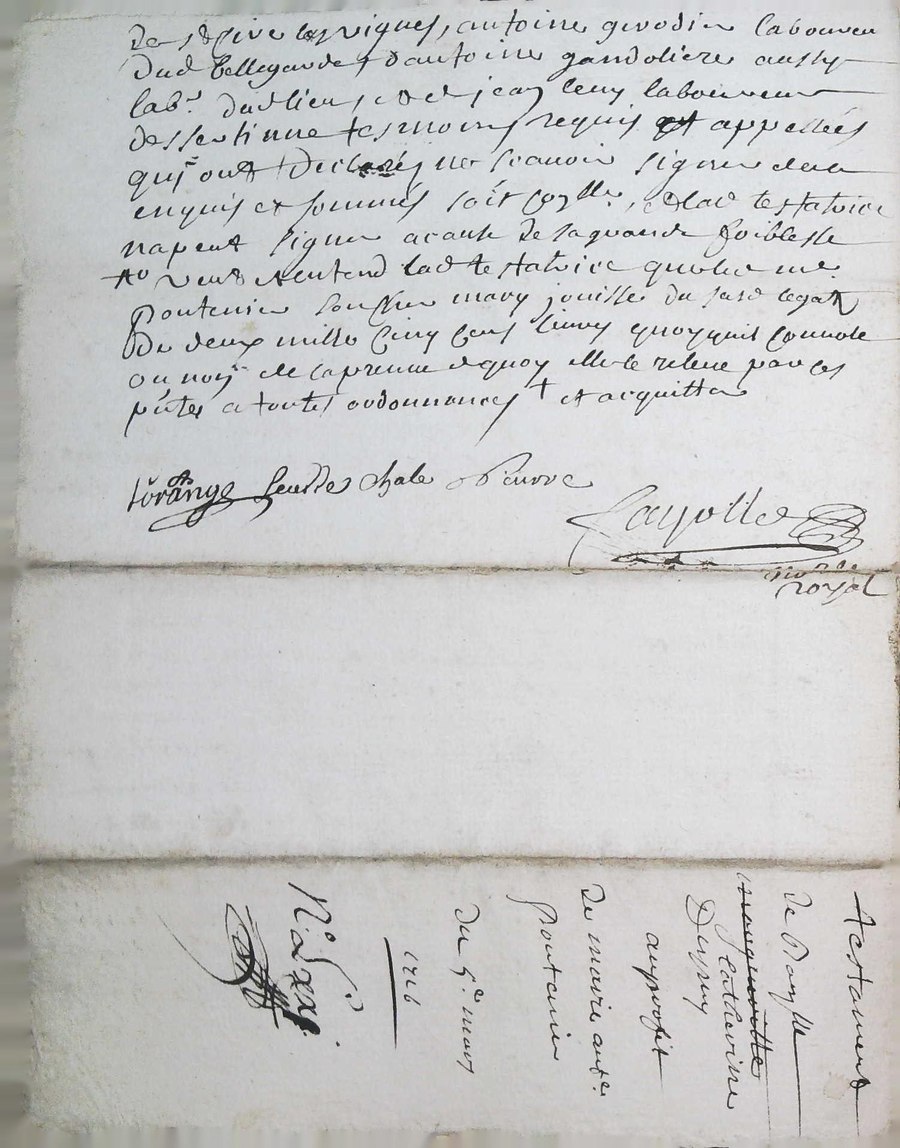 de st cire les vignes, antoine girodin laboureu
dud bellegarde, d'antoine gandoliere aussy
lab.r dud lieu, et de jean leuy laboureur
dessertinne tesmoins requis et appellés
qui ont déclarés ne scavoir signer de ce
enquis et sommés soit, et lad testatrice
na peut signer a cause de sa grande foiblesse
veut et entend lad testatrice que led me
pontenier son futur mary jouisse du susd legat
de deux mille cinq cens livres quoyquil conuole
ou non et de la preuue de quoy elle le releue par ces
pñtes a toutes ordonnances et acquitta
lorange chale Pierre
Fayolle
no.re
royal
Testament
de Dam.lle
margueritte
Catherine
Dupuy
au profit
de maire ant.e
Pontenier
du 5.e mars
1726
N.o